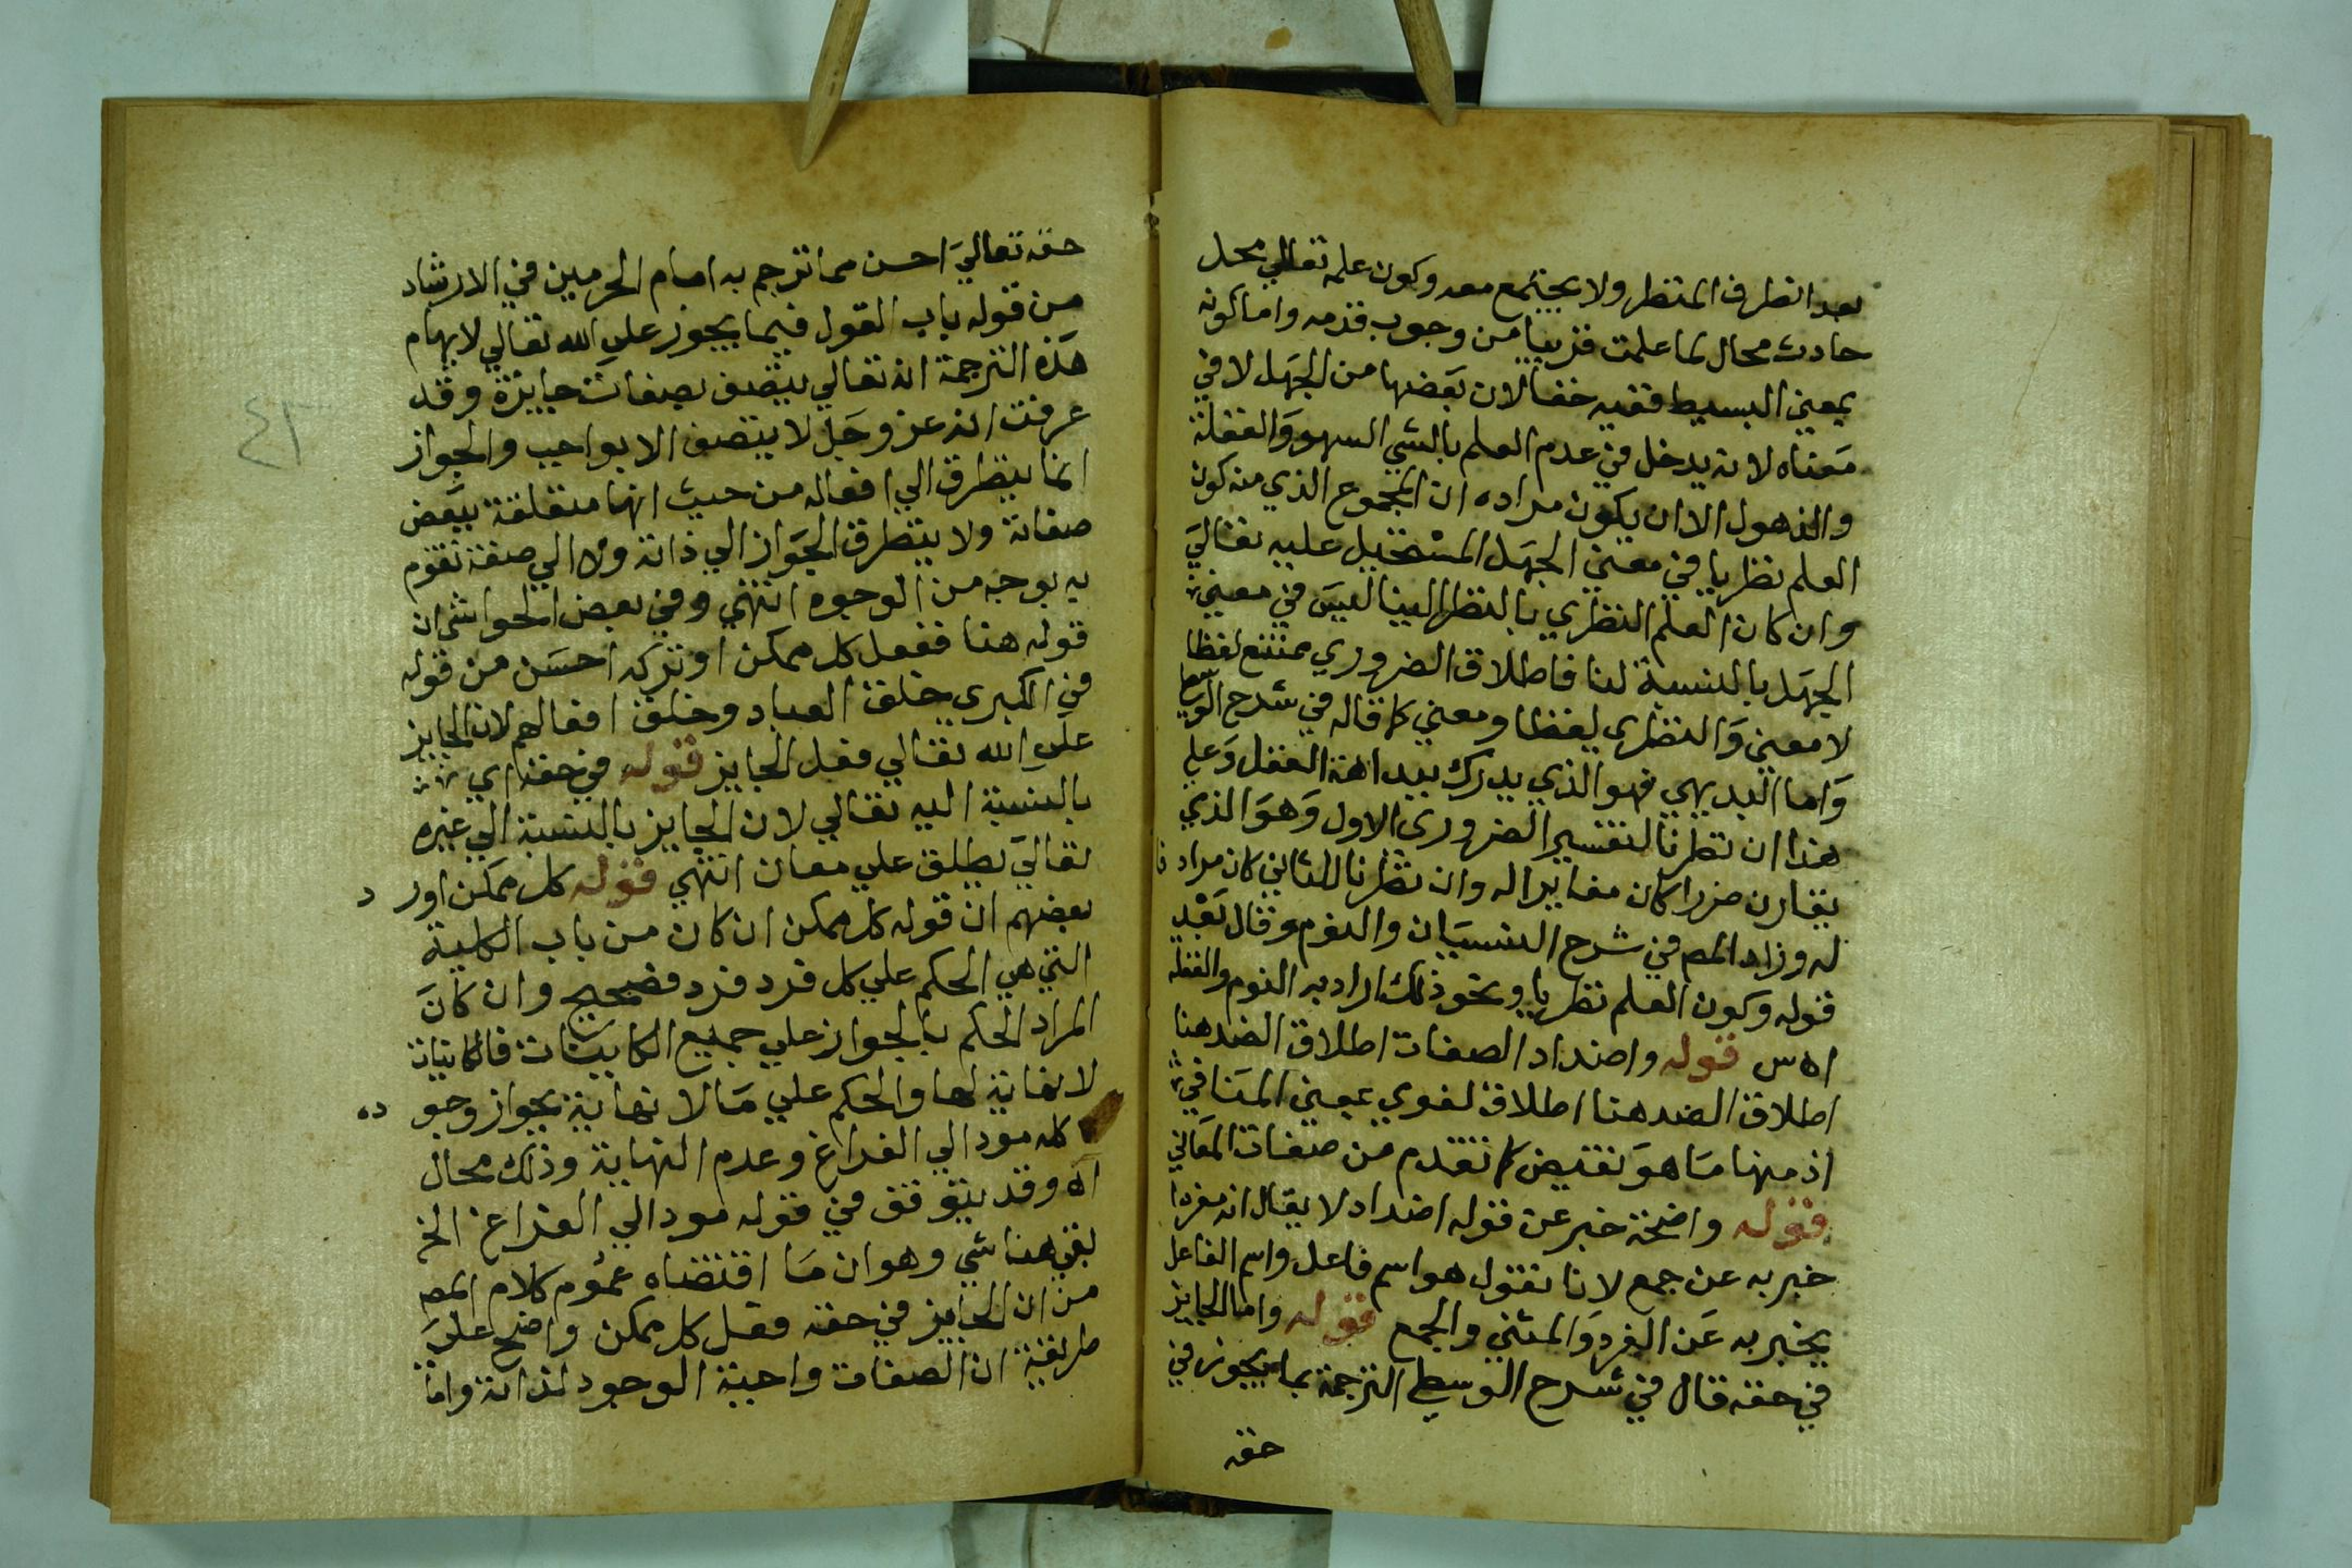 بعد انظرف المنظر ولا يجتمع معه وكون علمه تعالي محل
حادث محال لما علمت قريبا من وجوب قدمه واما كونه
بمعني البسيط ففيه خفا لان بعضها من الجهل لا في
معناه لانه يدخل في عدم العلم بالشي السهو والغفلة
والذهول الا ان يكون مراده ان المجموع الذي منه كون
العلم نظريا في معني الجهل المستحيل عليه تعالي
وان كان العلم النظري بالنظر الينا ليس في معني
الجهل بالنسبة لنا فاطلاق الضروري ممتنع لفظا
لا معني والنظري لفظا ومعني كما قاله في شرح الوسطي
واما البديهي فهو الذي يدرك ببداهة العقل وعلي
هذا ان نظرنا لتفسير الضروري الاول وهو الذي
يقارن ضررا كان مغايرا له وان نظرنا للثاني كان مرادفا
له وزاد المص في شرح النسيان والنوم وقال بعد
قوله وكون العلم نظريا ونحو ذلك اراد به النوم والغفلة
اه س قوله واضداد الصفات اطلاق الضد هنا
اطلاق الضد هنا اطلاق لغوي بمعني المنافي
اذ منها ما هو نقيض كما تقدم من صفات المعاني
قوله واضحة خبر عن قوله اضداد لا يقال انه مفردا
خبر به عن جمع لانا نقول هو اسم فاعل واسم الفاعل
يخبر به عن المفرد والمثني والجمع قوله واما الجايز
في حقه قال في شرح الوسطي الترجمة بما يجوز في
حقه
حقه تعالي احسن مما ترجم به امام الحرمين في الارشاد
من قوله باب القول فيما يجوز علي الله تعالي لايهام
هذه الترجمة انه تعالي يتصف بصفات جايزة وقد
عرفت انه عز وجل لا يتصف الا بواجب والجواز
انما يتطرق الي افعاله من حيث انها متعلقة ببعض
صفاته ولا يتطرق الجواز الي ذاته ولا الي صفة تقوم
به بوجه من الوجوه انتهي وفي بعض الحواشي ان
قوله هنا ففعل كل ممكن او تركه احسن من قوله
في الكبري خلق العباد وخلق افعالهم لان الجايز
علي الله تعالي فعل الجايز قوله في حقه اي
بالنسبة اليه تعالي لان الجايز بالنسبة الي غيره
تعالي يطلق علي معان انتهي قوله كل ممكن اورد
بعضهم ان قوله كل ممكن ان كان من باب الكلية
التي هي الحكم علي كل فرد فرد فصحيح وان كان
المراد الحكم بالجواز علي جميع الكاينات فالكاينات
لا نهاية لها والحكم علي ما لا نهاية بجواز وجوده
كله مود الي الفراغ وعدم النهاية وذلك محال
اه وقد يتوقف في قوله مود الي الفراغ الخ
بقي هنا شي وهو ان ما اقتضاه عموم كلام المص
من ان الجايز في حقه فعل كل ممكن واضح علي
طريقة ان الصفات واجبة الوجود لذاته واما
٤٣